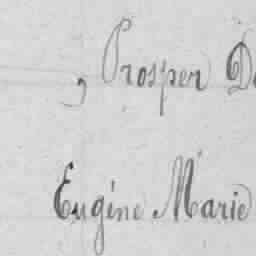 , Prosper D
Eugéne Marie